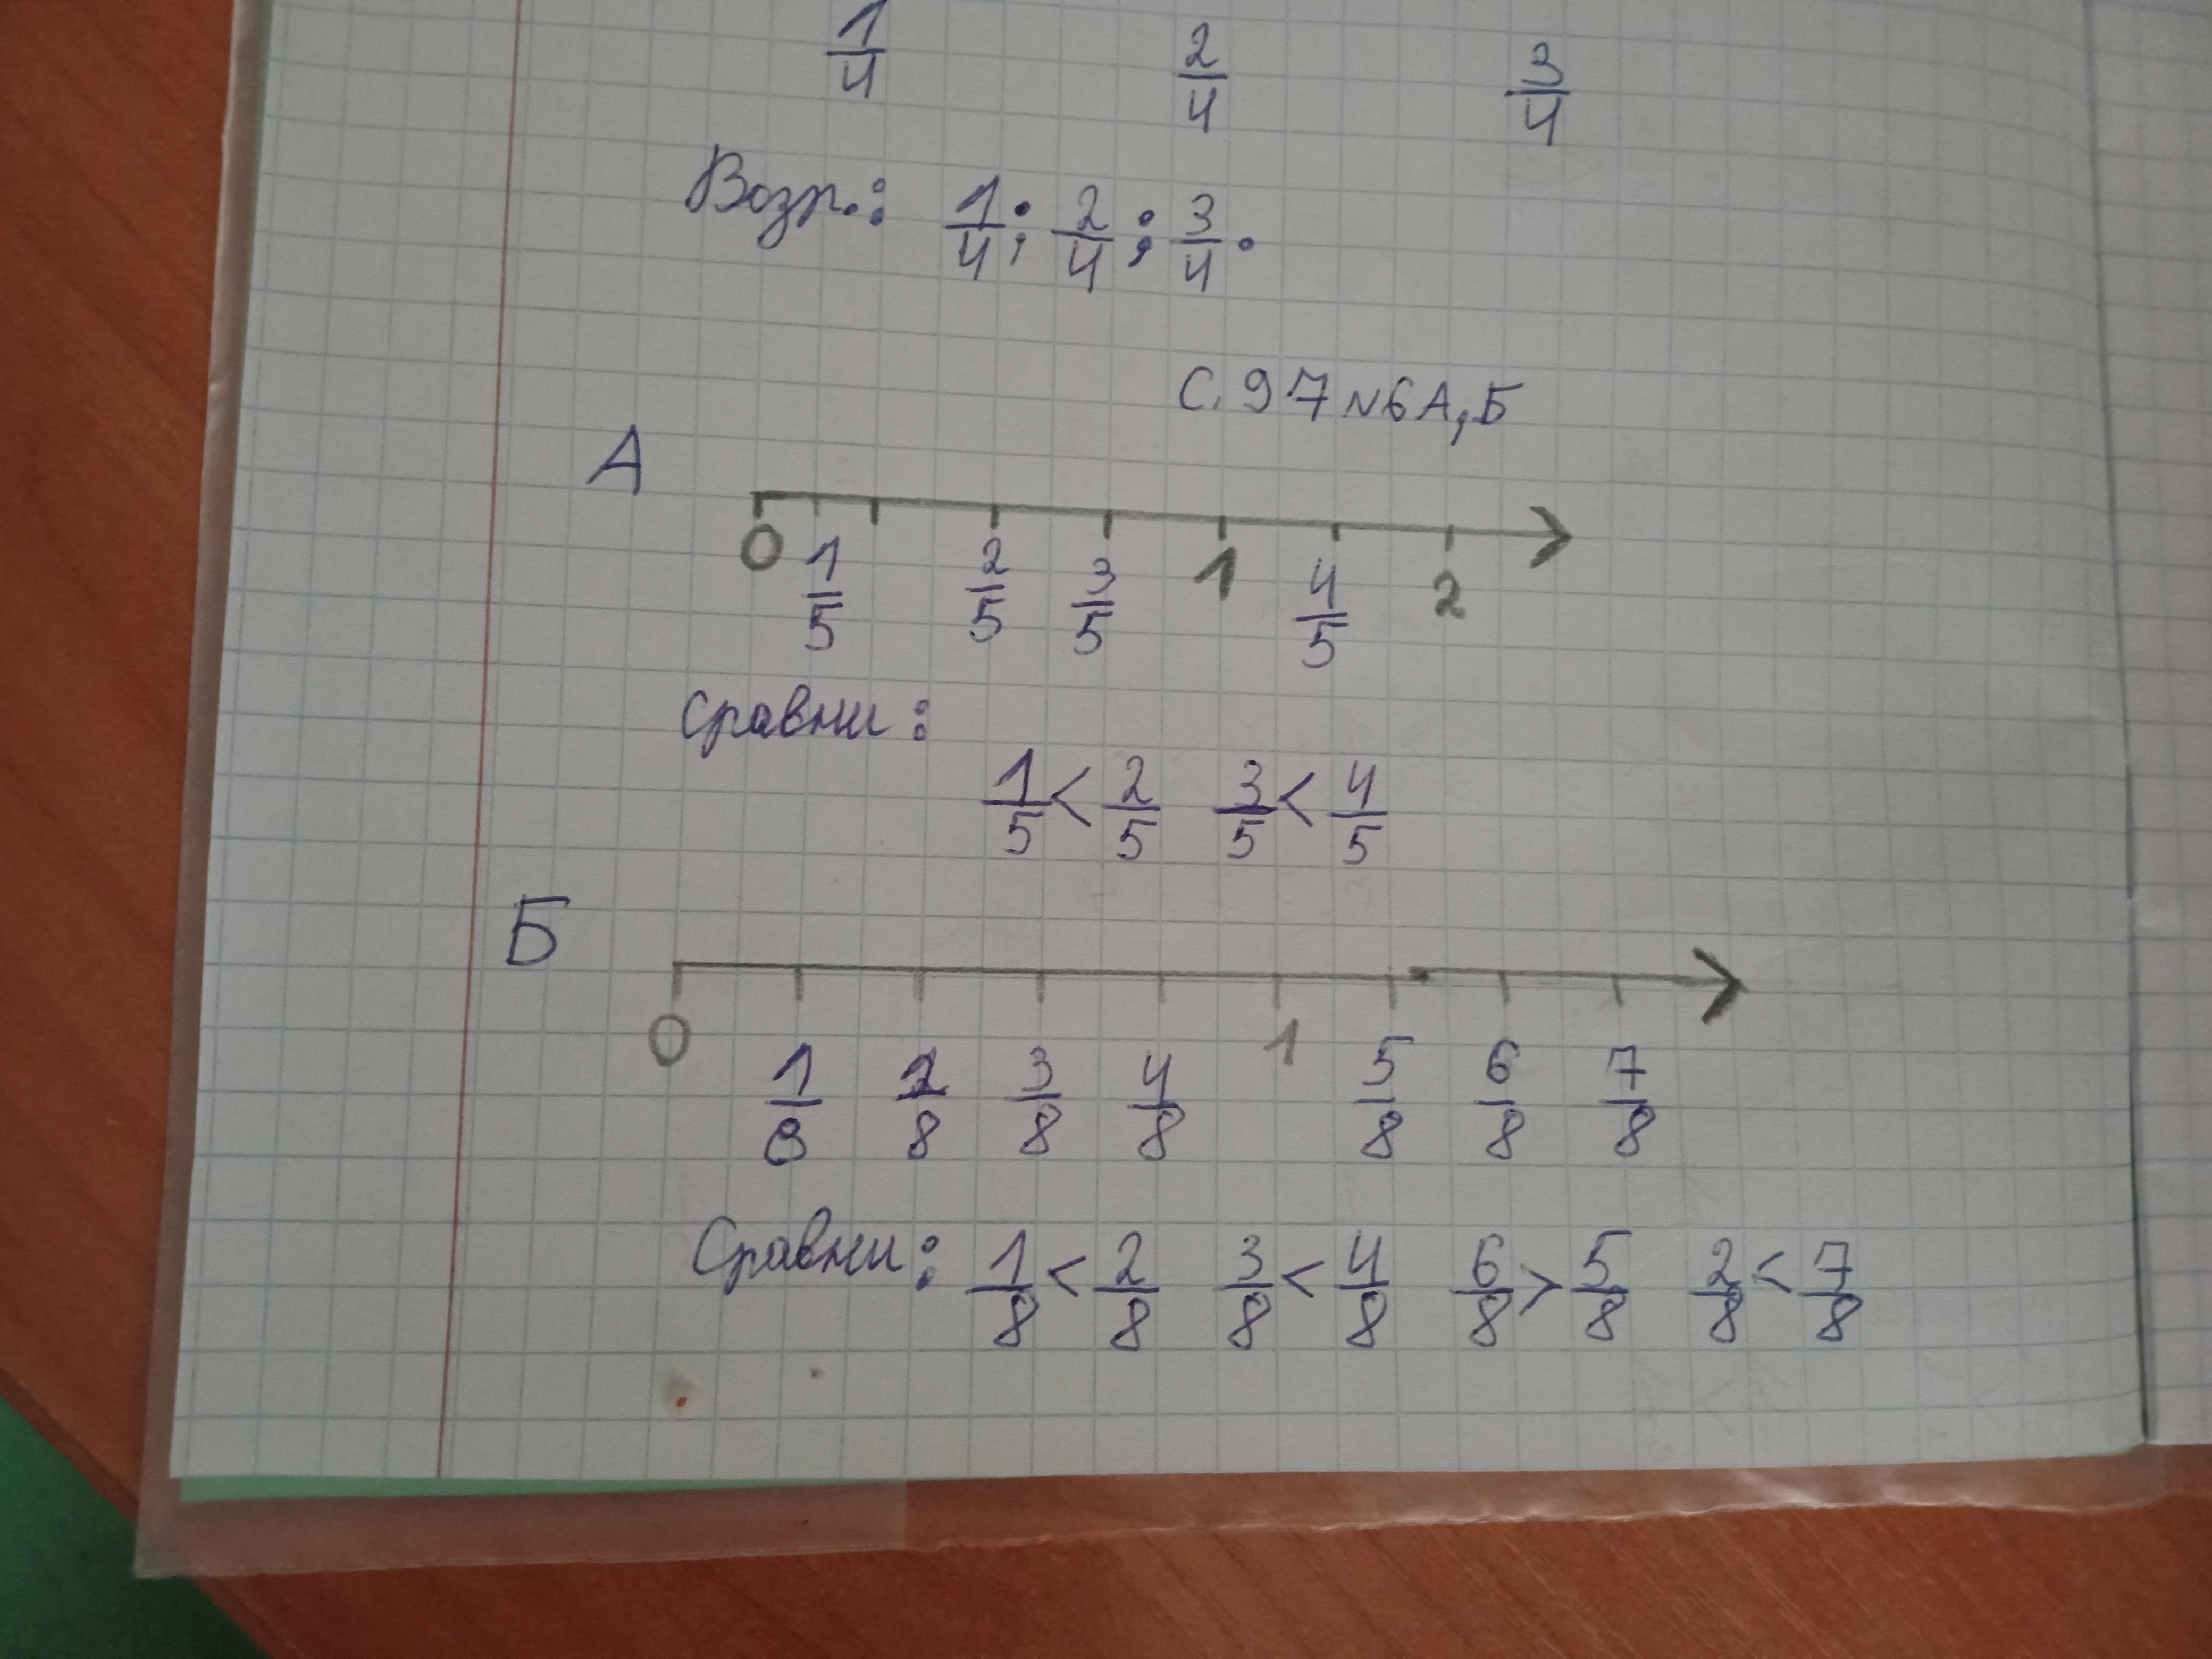 1/4 2/4 3/4
Возр.: 1/4; 2/4; 3/4.
С. 97 №6 А, Б
А
0 1/5 2/5 3/5 1 4/5 2
Сравни:
1/5 < 2/5 3/5 < 4/5
Б
0 1/8 2/8 3/8 4/8 1 5/8 6/8 7/8
Сравни: 1/8 < 2/8 3/8 < 4/8 6/8 > 5/8 2/8 < 7/8